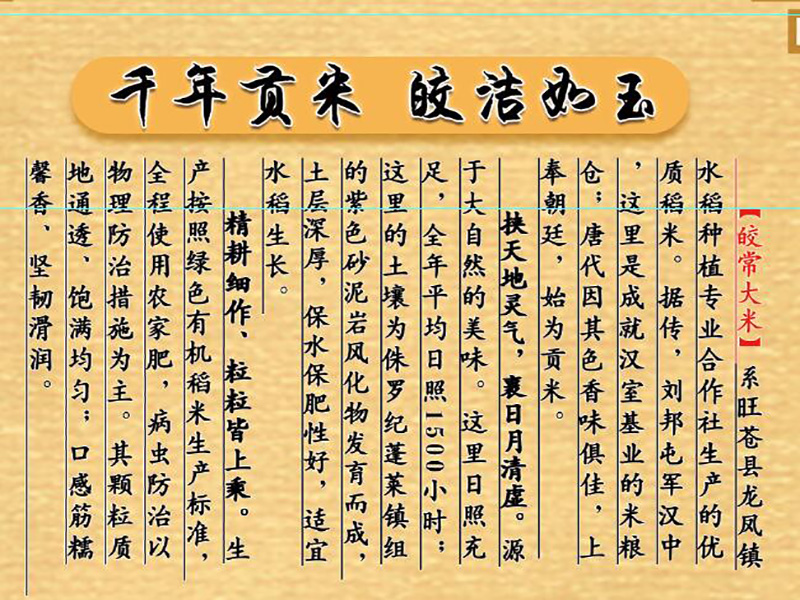 千年贡米 皎洁如玉
【皎常大米】系旺苍县龙凤镇
水稻种植专业合作社生产的优
质稻米。据传，刘邦屯军汉中
，这里是成就汉室基业的米粮
仓；唐代因其色香味俱佳，上
奉朝廷，始为贡米。
挟天地灵气，襄日月清虚。源
于大自然的美味。这里日照充
足，全年平均日照1500小时；
这里的土壤为侏罗纪蓬莱镇组
的紫色砂泥岩风化物发育而成，
土层深厚，保水保肥性好，适宜
水稻生长。
精耕细作、粒粒皆上乘。生
产按照绿色有机稻米生产标准，
全程使用农家肥，病虫防治以
物理防治措施为主。其颗粒质
地通透、饱满均匀；口感筋糯
馨香、坚韧滑润。